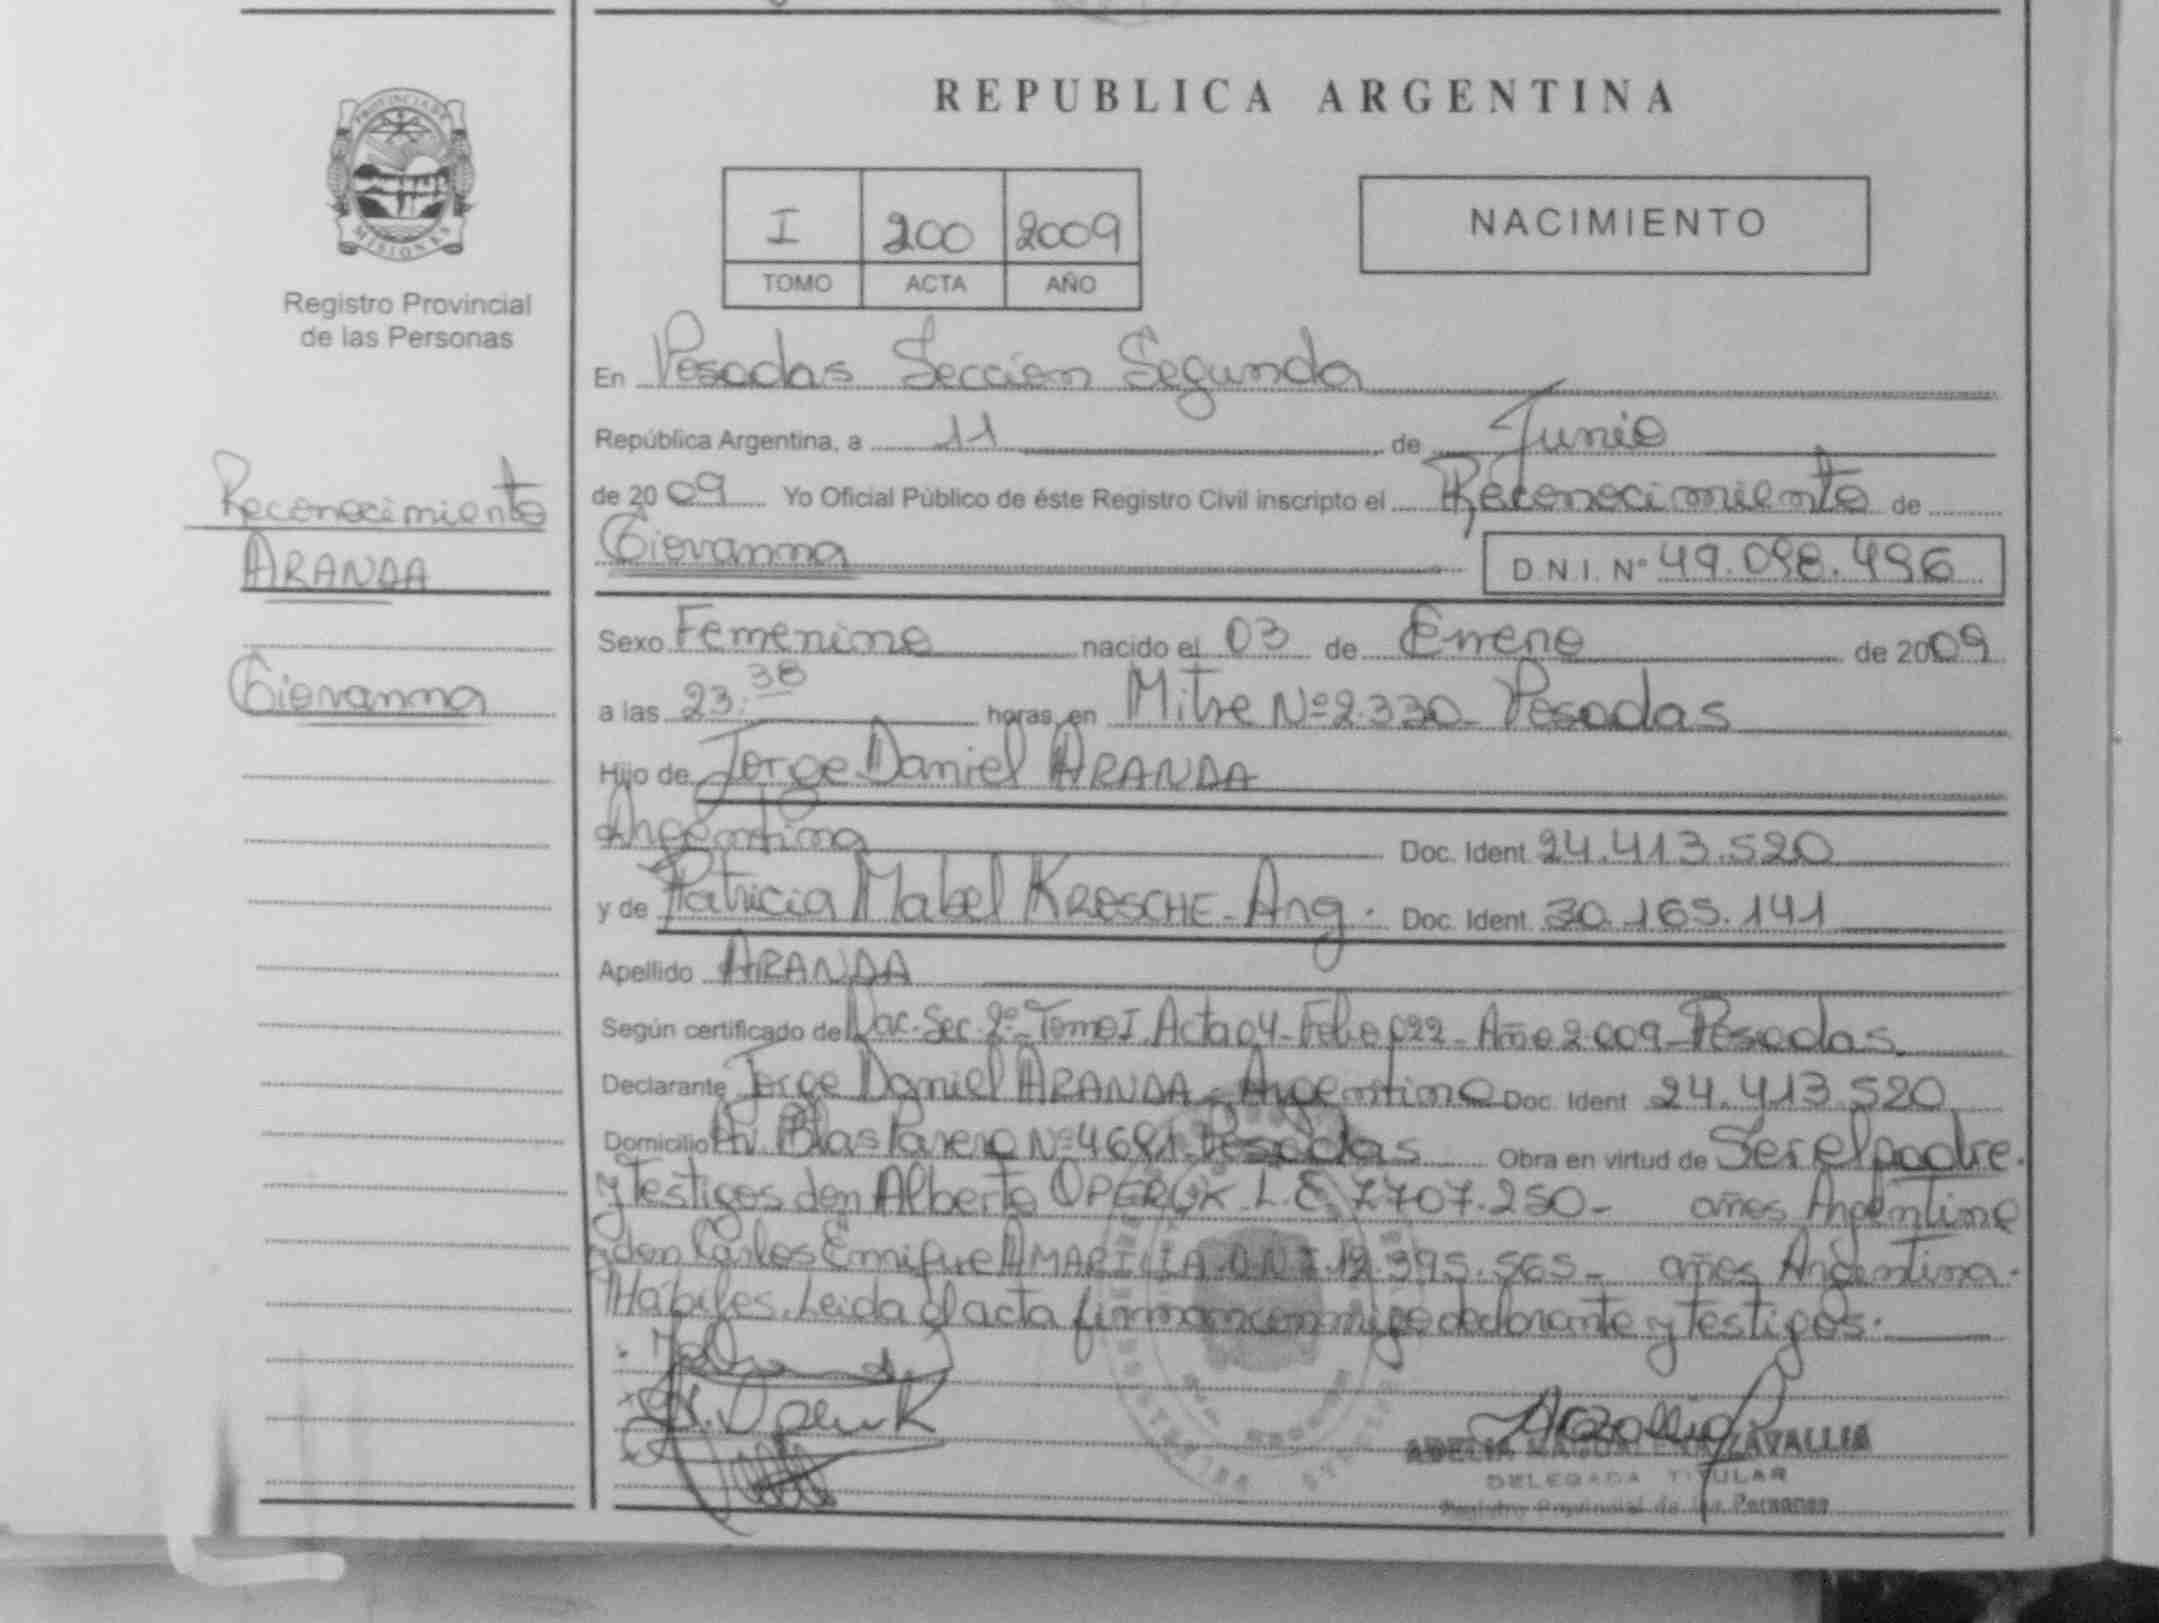 REPUBLICA ARGENTINA
PROVINCIA DE
MISIONES
Registro Provincial
de las Personas
I 200 2009
TOMO ACTA AÑO
NACIMIENTO
En Posadas Seccion Segunda
República Argentina, a 11 de Junio
de 2009 Yo Oficial Público de éste Registro Civil inscripto el Reconocimiento de
Giovanna D.N.I. Nº 49.098.496
Reconocimiento
ARANDA
Giovanna
Sexo Femenino nacido el 03 de Enero de 2009
a las 23:38 horas, en Mitre Nº 2.330 - Posadas
Hijo de Jorge Daniel ARANDA
Argentino Doc. Ident. 24.413.520
y de Patricia Mabel KROSCHE - Arg. Doc. Ident. 30.165.141
Apellido ARANDA
Según certificado de Nac. Sec. 2º - Tomo I. Acta 04 - Folio 022 - Año 2009 - Posadas.
Declarante Jorge Daniel ARANDA - Argentino Doc. Ident 24.413.520
Domicilio Av. Blas Parera Nº 4681 Posadas Obra en virtud de Ser el padre.
y Testigos don Alberto OPERUK L.E. 7.707.250 - años Argentino
y don Carlos Enrique D.N.I. 12.395.565 - años Argentina.
Hábiles. Leida el acta firman conmigo declarante y Testigos.
ADELIA MAGDALENA ZAVALLIA
DELEGADA TITULAR
Registro Provincial de las Personas